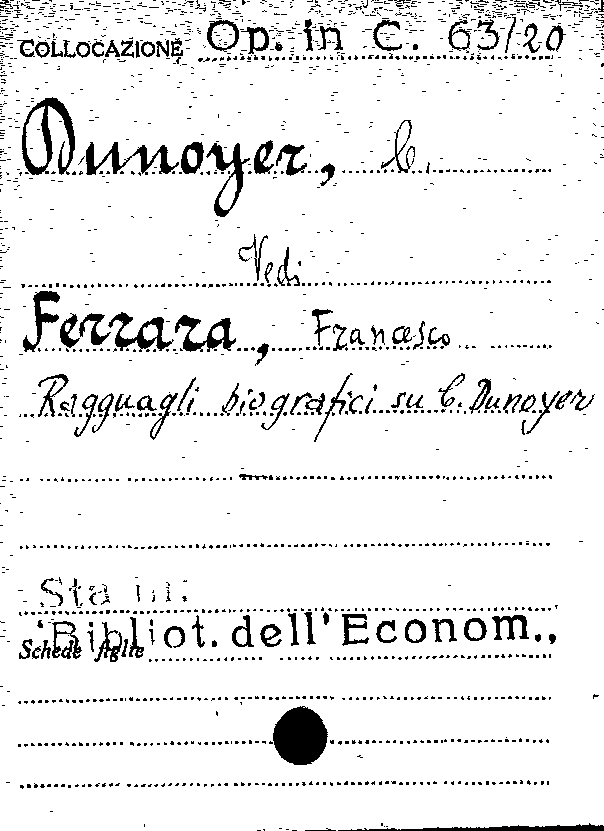 COLLOCAZIONE Op. in C. 63/20
Dunoyer, C.
Vedi
Ferrara, Francesco
Ragguagli biografici su C. Dunoyer
Sta in:
"Bibliot. dell'Econom.,
Schede figlie